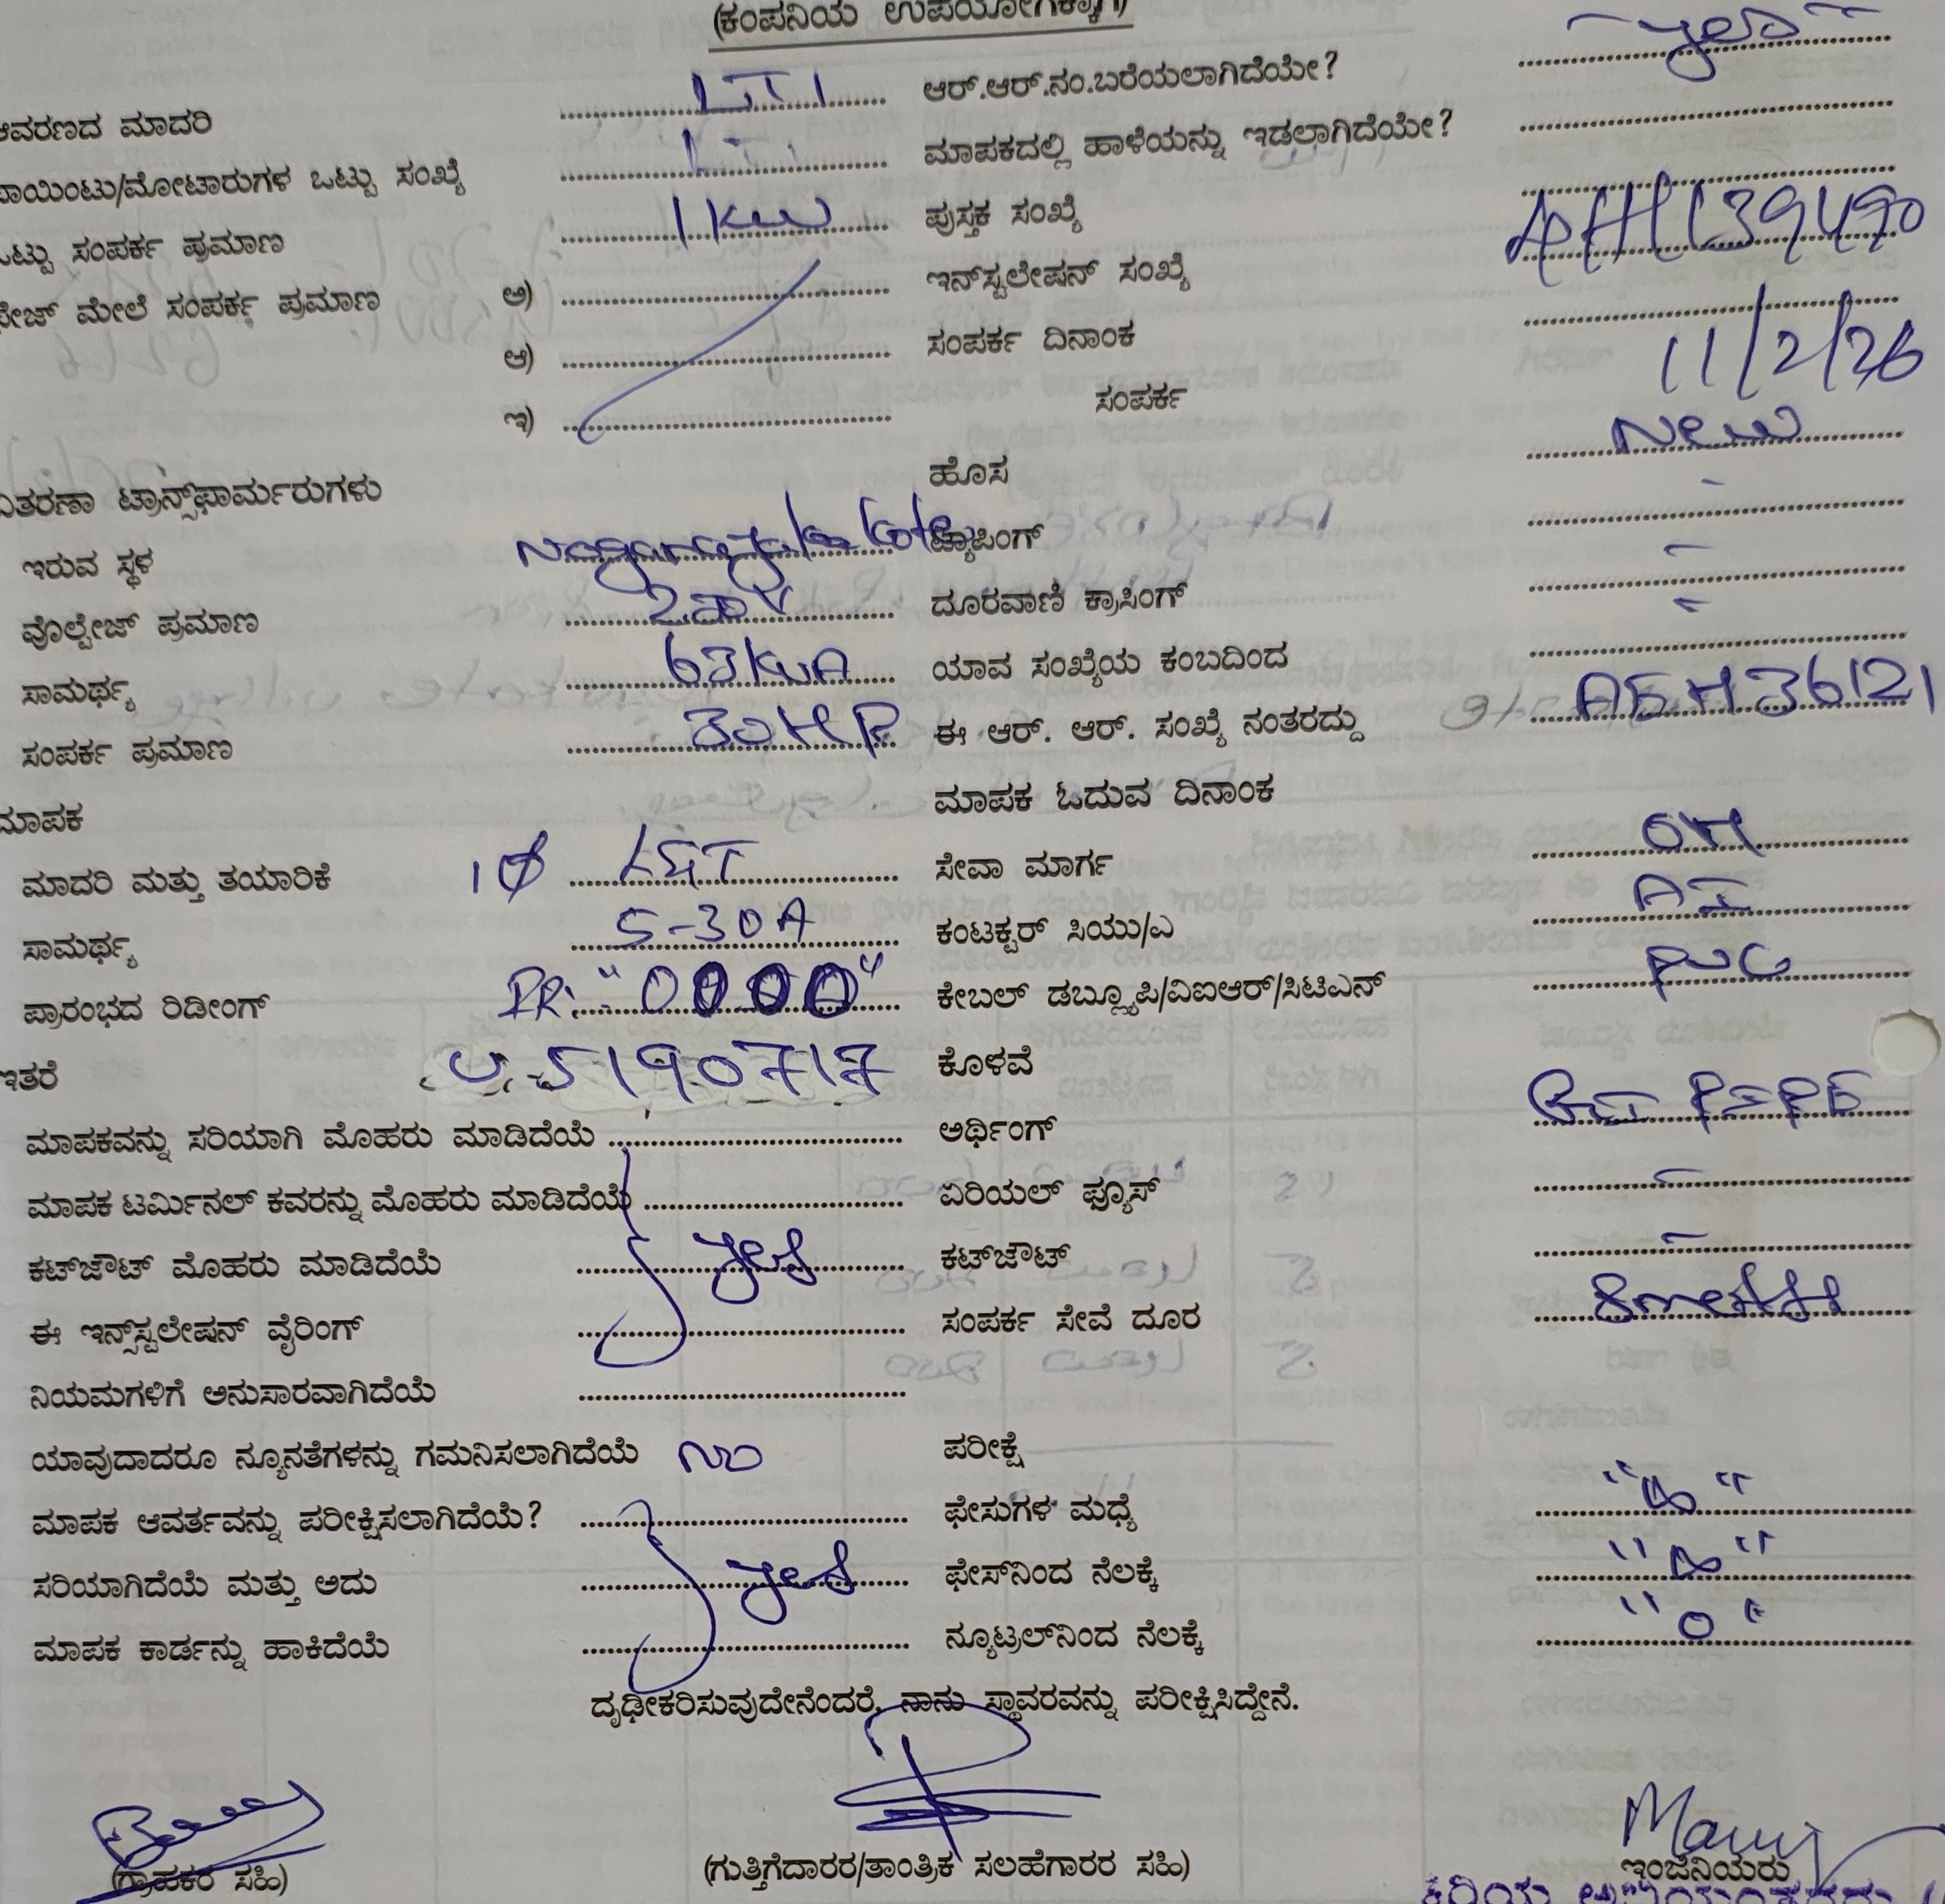 (ಕಂಪನಿಯ ಉಪಯೋಗಕ್ಕಾಗಿ)
ಆವರಣದ ಮಾದರಿ LT1 ಆರ್.ಆರ್.ನಂ.ಬರೆಯಲಾಗಿದೆಯೇ? yes
ಪಾಯಿಂಟು/ಮೋಟಾರುಗಳ ಒಟ್ಟು ಸಂಖ್ಯೆ ಮಾಪಕದಲ್ಲಿ ಹಾಳೆಯನ್ನು ಇಡಲಾಗಿದೆಯೇ?
ಒಟ್ಟು ಸಂಪರ್ಕ ಪ್ರಮಾಣ 1 KW ಪುಸ್ತಕ ಸಂಖ್ಯೆ
ಫೇಜ್ ಮೇಲೆ ಸಂಪರ್ಕ ಪ್ರಮಾಣ ಅ) ಇನ್‌ಸ್ಟಲೇಷನ್ ಸಂಖ್ಯೆ
ಆ) ಸಂಪರ್ಕ ದಿನಾಂಕ 11/2/26
ಇ) ಸಂಪರ್ಕ
ಹೊಸ New
ವಿತರಣಾ ಟ್ರಾನ್ಸ್‌ಫಾರ್ಮರುಗಳು
ಇರುವ ಸ್ಥಳ ಟ್ಯಾಪಿಂಗ್ -
ವೊಲ್ಟೇಜ್ ಪ್ರಮಾಣ ದೂರವಾಣಿ ಕ್ರಾಸಿಂಗ್ -
ಸಾಮರ್ಥ್ಯ 63 KVA ಯಾವ ಸಂಖ್ಯೆಯ ಕಂಬದಿಂದ -
ಸಂಪರ್ಕ ಪ್ರಮಾಣ 30 HP ಈ ಆರ್. ಆರ್. ಸಂಖ್ಯೆ ನಂತರದ್ದು AEH 36121
ಮಾಪಕ ಮಾಪಕ ಓದುವ ದಿನಾಂಕ
ಮಾದರಿ ಮತ್ತು ತಯಾರಿಕೆ 1Ø L&T ಸೇವಾ ಮಾರ್ಗ OH
ಸಾಮರ್ಥ್ಯ 5-30A ಕಂಟಕ್ಟರ್ ಸಿಯು/ಎ
ಪ್ರಾರಂಭದ ರಿಡೀಂಗ್ IR: "0000" ಕೇಬಲ್ ಡಬ್ಲ್ಯೂಪಿ/ವಿಐಆರ್/ಸಿಟಿಎನ್ PVC
ಇತರೆ 5190717 ಕೊಳವೆ
ಮಾಪಕವನ್ನು ಸರಿಯಾಗಿ ಮೊಹರು ಮಾಡಿದೆಯೆ ಅರ್ಥಿಂಗ್
ಮಾಪಕ ಟರ್ಮಿನಲ್ ಕವರನ್ನು ಮೊಹರು ಮಾಡಿದೆಯೆ ಏರಿಯಲ್ ಫ್ಯೂಸ್ -
ಕಟ್‌ಜೌಟ್ ಮೊಹರು ಮಾಡಿದೆಯೆ yes ಕಟ್‌ಜೌಟ್ -
ಈ ಇನ್‌ಸ್ಟಲೇಷನ್ ವೈರಿಂಗ್ ಸಂಪರ್ಕ ಸೇವೆ ದೂರ
ನಿಯಮಗಳಿಗೆ ಅನುಸಾರವಾಗಿದೆಯೆ
ಯಾವುದಾದರೂ ನ್ಯೂನತೆಗಳನ್ನು ಗಮನಿಸಲಾಗಿದೆಯೆ NO ಪರೀಕ್ಷೆ
ಮಾಪಕ ಆವರ್ತವನ್ನು ಪರೀಕ್ಷಿಸಲಾಗಿದೆಯೆ? ಫೇಸುಗಳ ಮಧ್ಯೆ "∞"
ಸರಿಯಾಗಿದೆಯೆ ಮತ್ತು ಅದು yes ಫೇಸ್‌ನಿಂದ ನೆಲಕ್ಕೆ "∞"
ಮಾಪಕ ಕಾರ್ಡನ್ನು ಹಾಕಿದೆಯೆ ನ್ಯೂಟ್ರಲ್‌ನಿಂದ ನೆಲಕ್ಕೆ "0"
ದೃಢೀಕರಿಸುವುದೇನೆಂದರೆ, ನಾನು ಸ್ಥಾವರವನ್ನು ಪರೀಕ್ಷಿಸಿದ್ದೇನೆ.
(ಗ್ರಾಹಕರ ಸಹಿ) (ಗುತ್ತಿಗೆದಾರರ/ತಾಂತ್ರಿಕ ಸಲಹೆಗಾರರ ಸಹಿ) ಇಂಜಿನಿಯರು